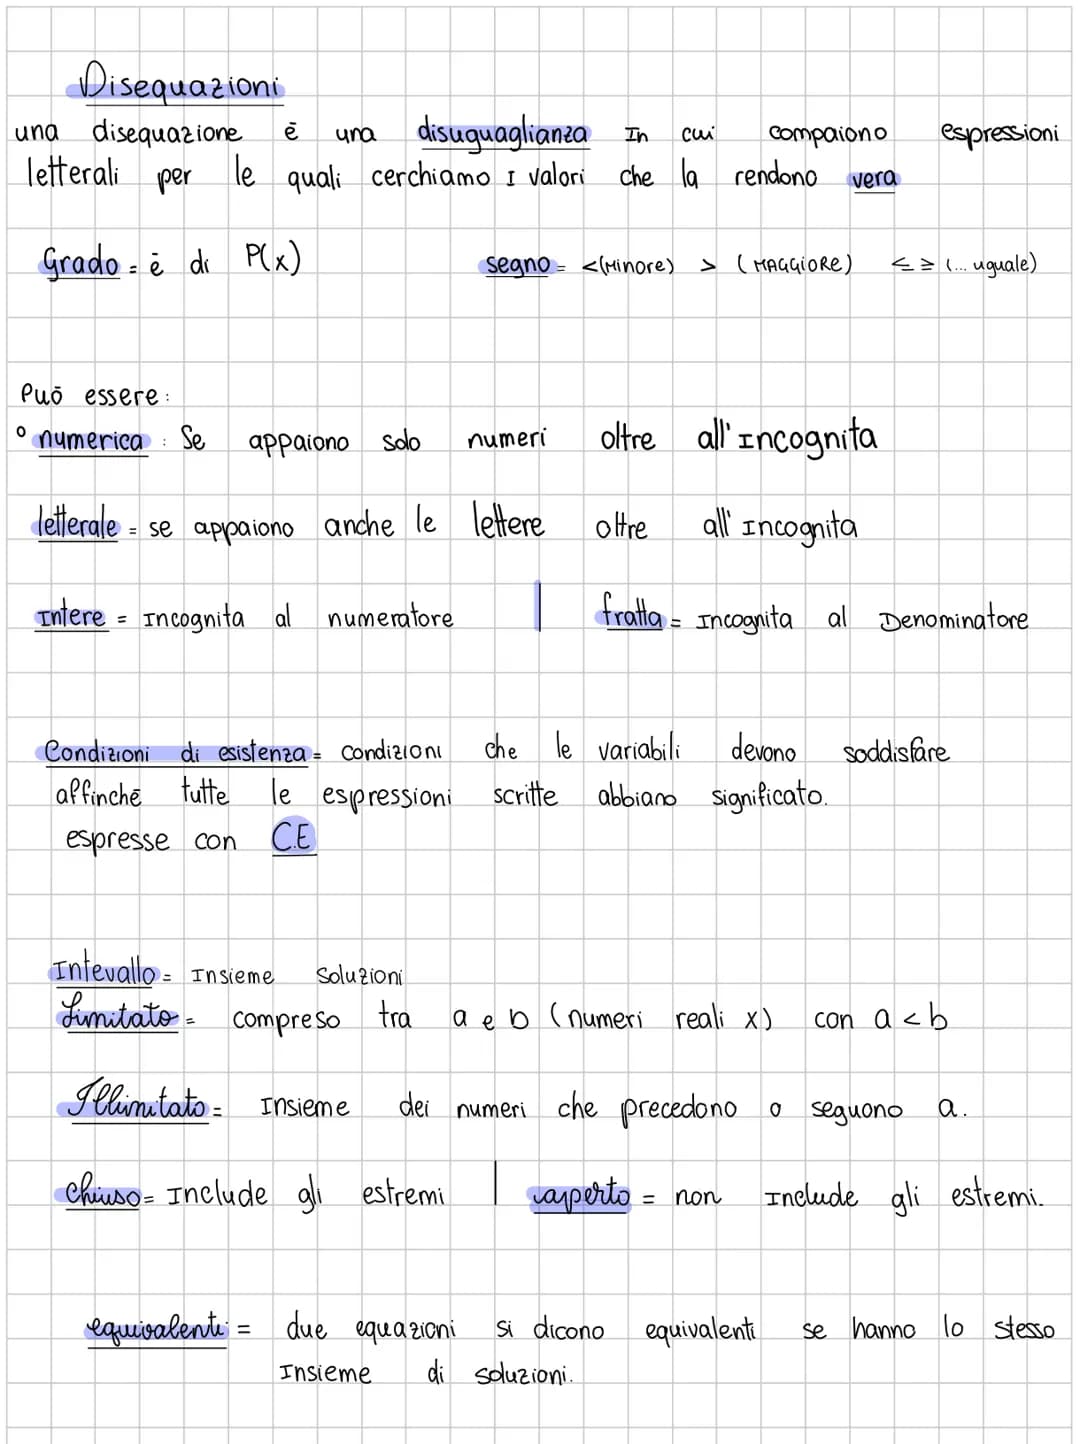 Disequazioni
una disequazione ē una disuguaglianza In cui compaiono espressioni
letterali per le quali cerchiamo I valori che la rendono vera
Grado = ē di P(x) segno = <(Minore) > (MAGGIORE) ≤ ≥ (... uguale)
Può essere:
° numerica : Se appaiono solo numeri oltre all'Incognita
letterale = se appaiono anche le lettere oltre all'Incognita
Intere = Incognita al numeratore | fratta = Incognita al Denominatore
Condizioni di esistenza = condizioni che le variabili devono soddisfare
affinchē tutte le espressioni scritte abbiano significato.
espresse con C.E
Intevallo = Insieme Soluzioni
Limitato = compreso tra a e b (numeri reali x) con a < b
Illimitato = Insieme dei numeri che precedono o seguono a.
Chiuso = Include gli estremi | aperto = non Include gli estremi.
equivalenti = due equazioni si dicono equivalenti se hanno lo stesso
Insieme di soluzioni.